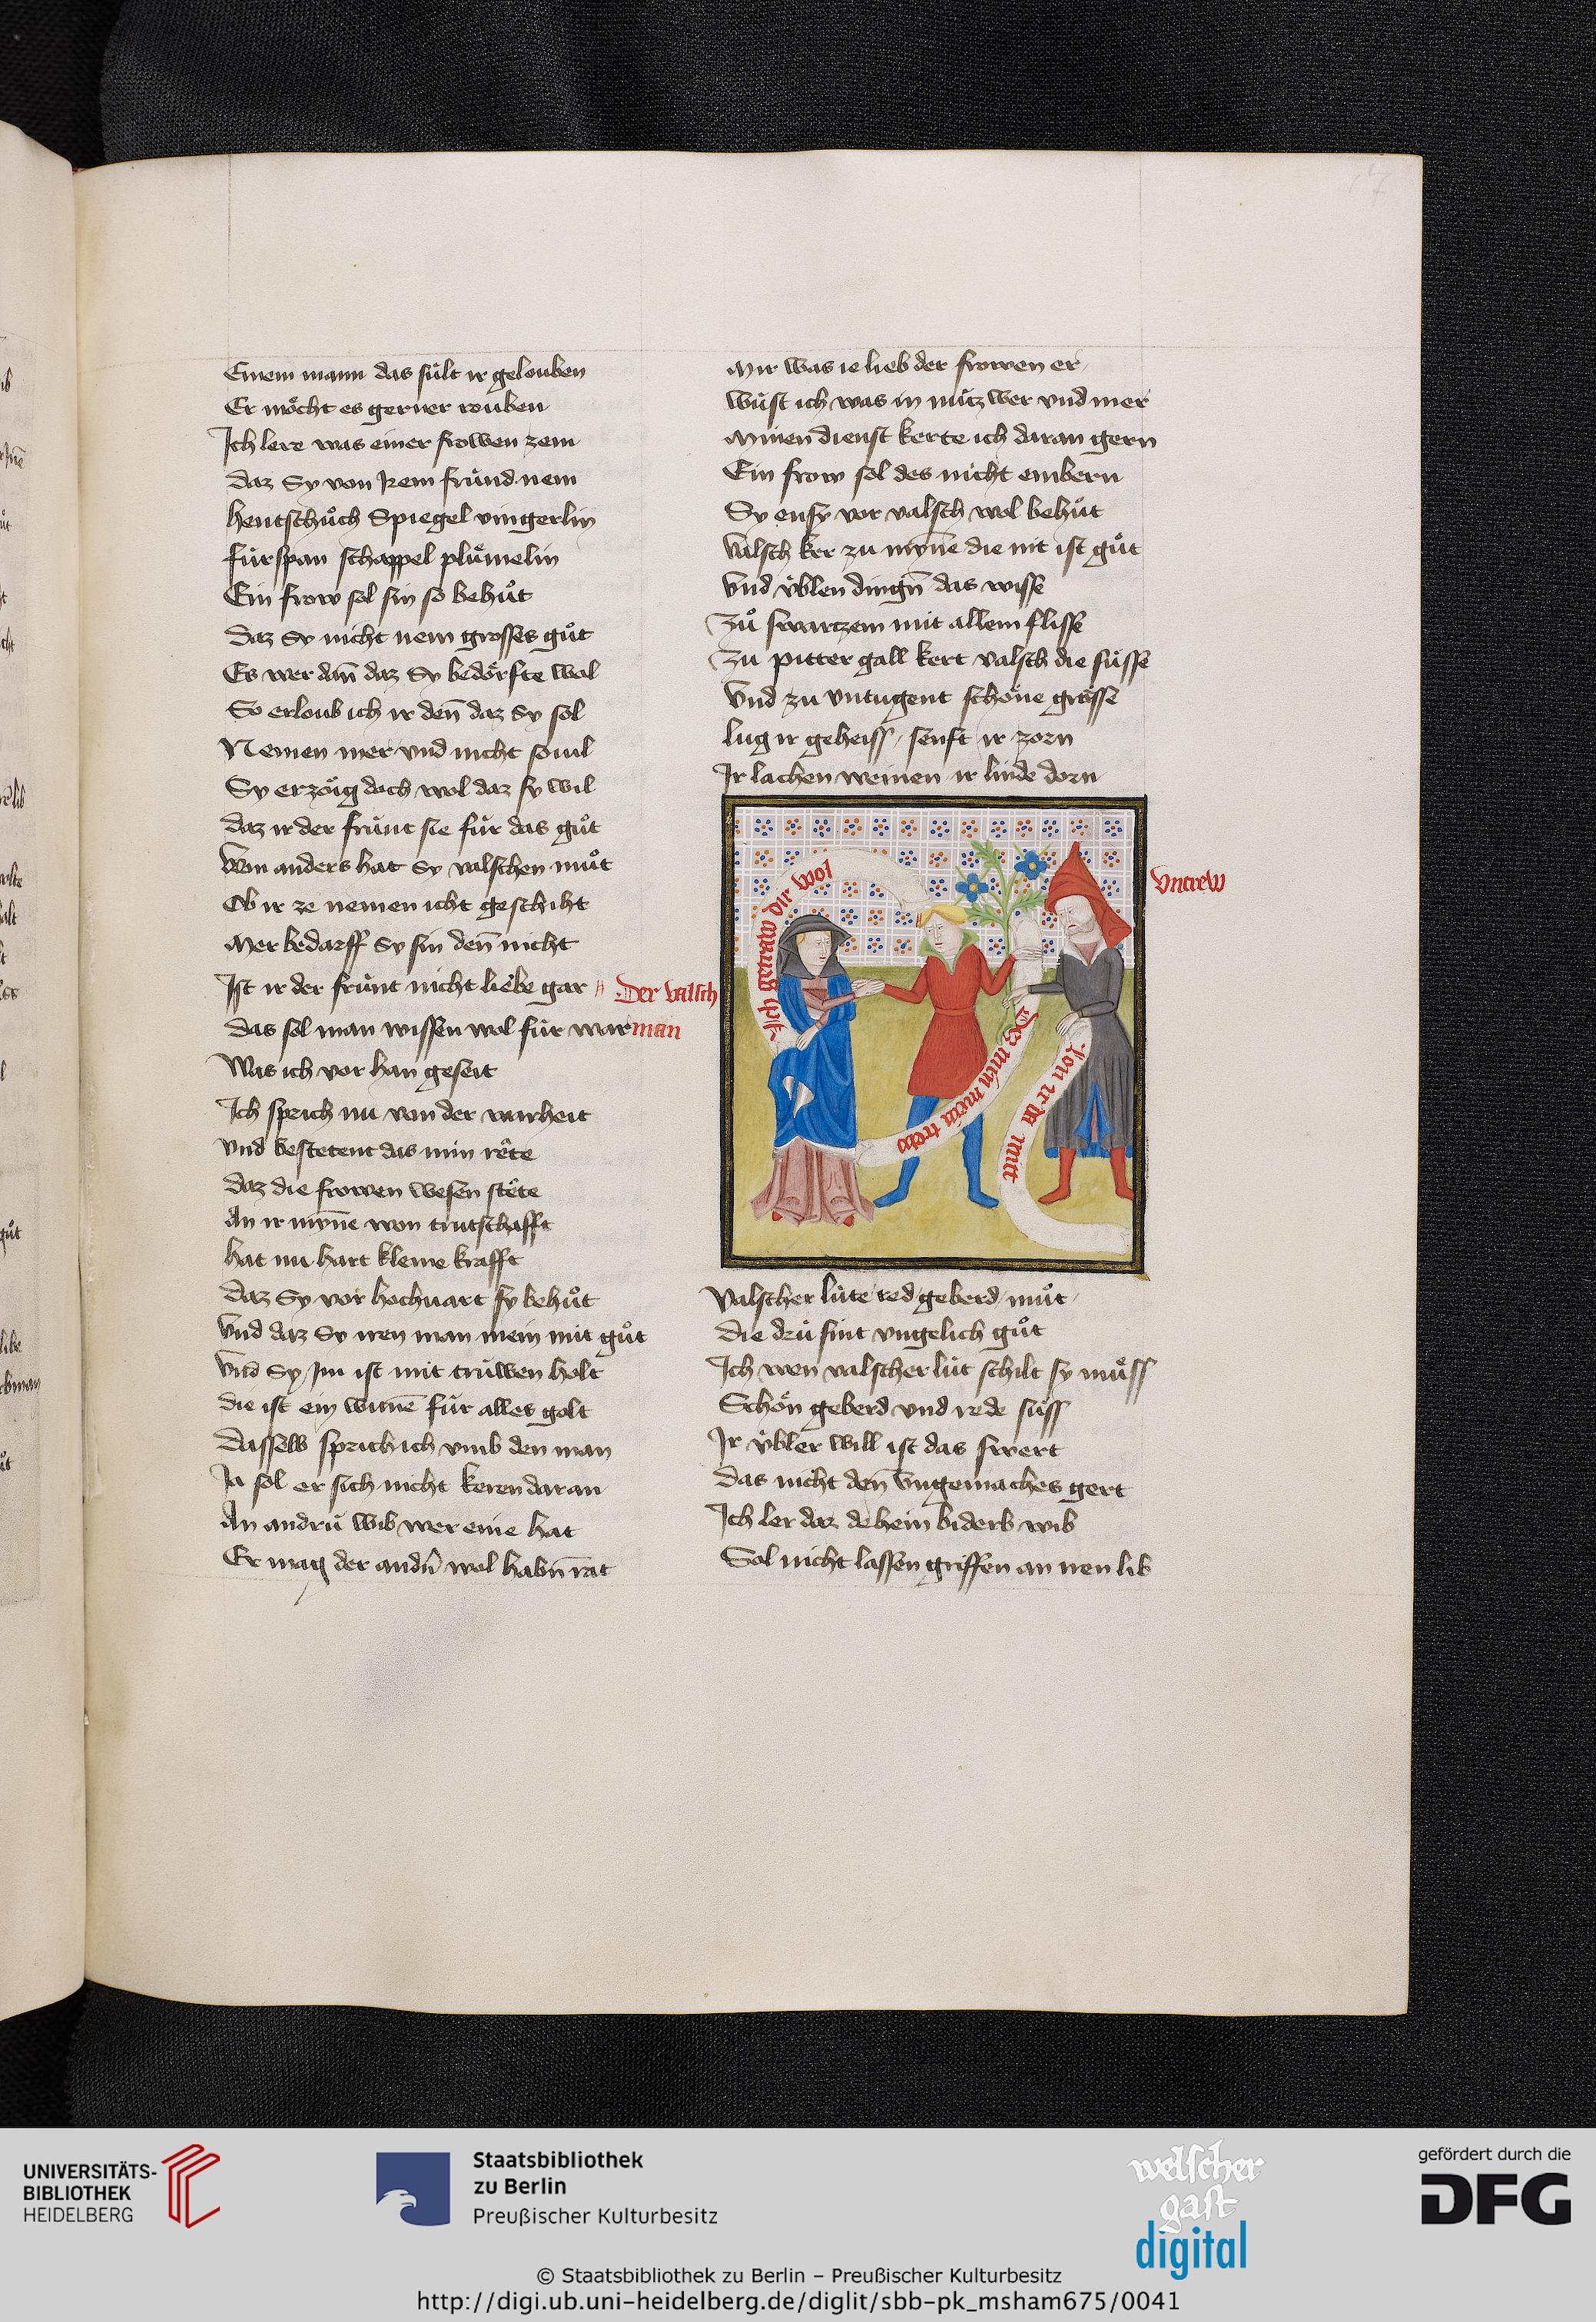 Einem mann das sült ir gelouben
Er möcht es gerner rouben
Ich lere was einer frowen zem
daz Sy von Irem fründ nem
hentschůch Spiegel vingerlin
fürspan schappel plůmelin
Ein frow sol sin so behůt
Daz Sy nicht nem grosses gůt
Es wer dañ daz Sy bedörfte wol
So erloub ich ir deñ daz Sy sol
Nemen mer vnd nicht souil
Sy erzöig doch wol daz sy wil
Daz ir der frünt sie für das gůt
Von anders hat Sy valschen můt
Ob ir ze nemen icht geschiht
Mer bedarff Sy sin deñ nicht
Ist ir der frünt nicht liebe gar
das sol man wissen wol für war
Was ich vor han geseit
Ich sprich nu von der warheit
vnd bestetent das min rête
Daz die frowen wesen stête
An ir mÿne won trutschafft
hat nu hart kleine krafft
Daz Sy vor hochuart sy behůt
Vnd daz Sy iren man mein mit gůt
Vnd Sy Im ist mit trüwen holt
die ist ein wune für alles golt
Dasselb sprich ich vmb den man
Ja sol er sich nicht keren daran
An andrü wib wer eine hat
Er mag der andn wol habñ rat
Der valsch
man
Mir was ie lieb der frowen er
Wüst ich was in nütz wer vnd mer
Minen dienst kerte ich daran gern
Ein frow sol des nicht embern
Sy ensy vor valsch wol behůt
Valsch ker zu mÿne die nit ist gůt
Vnd üblen dingñ das wisse
Zů swarczem mit allem flisse
Zu pitter gall kert valsch die süsse
Vnd zu vntugent schöne grüsse
lug ir geheiss / senft ir zorn
Ir lachen weinen ir linde dorn
Ich getraw dir wol
Des min mein trew
Lon ir mitt
Vntrew
Valscher lüte red geberd / můt /
Die drü sint vngelich gůt
Ich wen valscher lüt schilt sy müss
Schön geberd vnd rede süss
Ir übler will ist das swert
Das nicht deñ Vngemaches gert
Ich ler daz dehein biderb wib
Sol nicht lassen griffen an iren lib
UNIVERSITÄTS-
BIBLIOTHEK
HEIDELBERG
Staatsbibliothek
zu Berlin
Preußischer Kulturbesitz
welscher
gast
digital
gefördert durch die
DFG
© Staatsbibliothek zu Berlin – Preußischer Kulturbesitz
http://digi.ub.uni-heidelberg.de/diglit/sbb-pk_msham675/0041